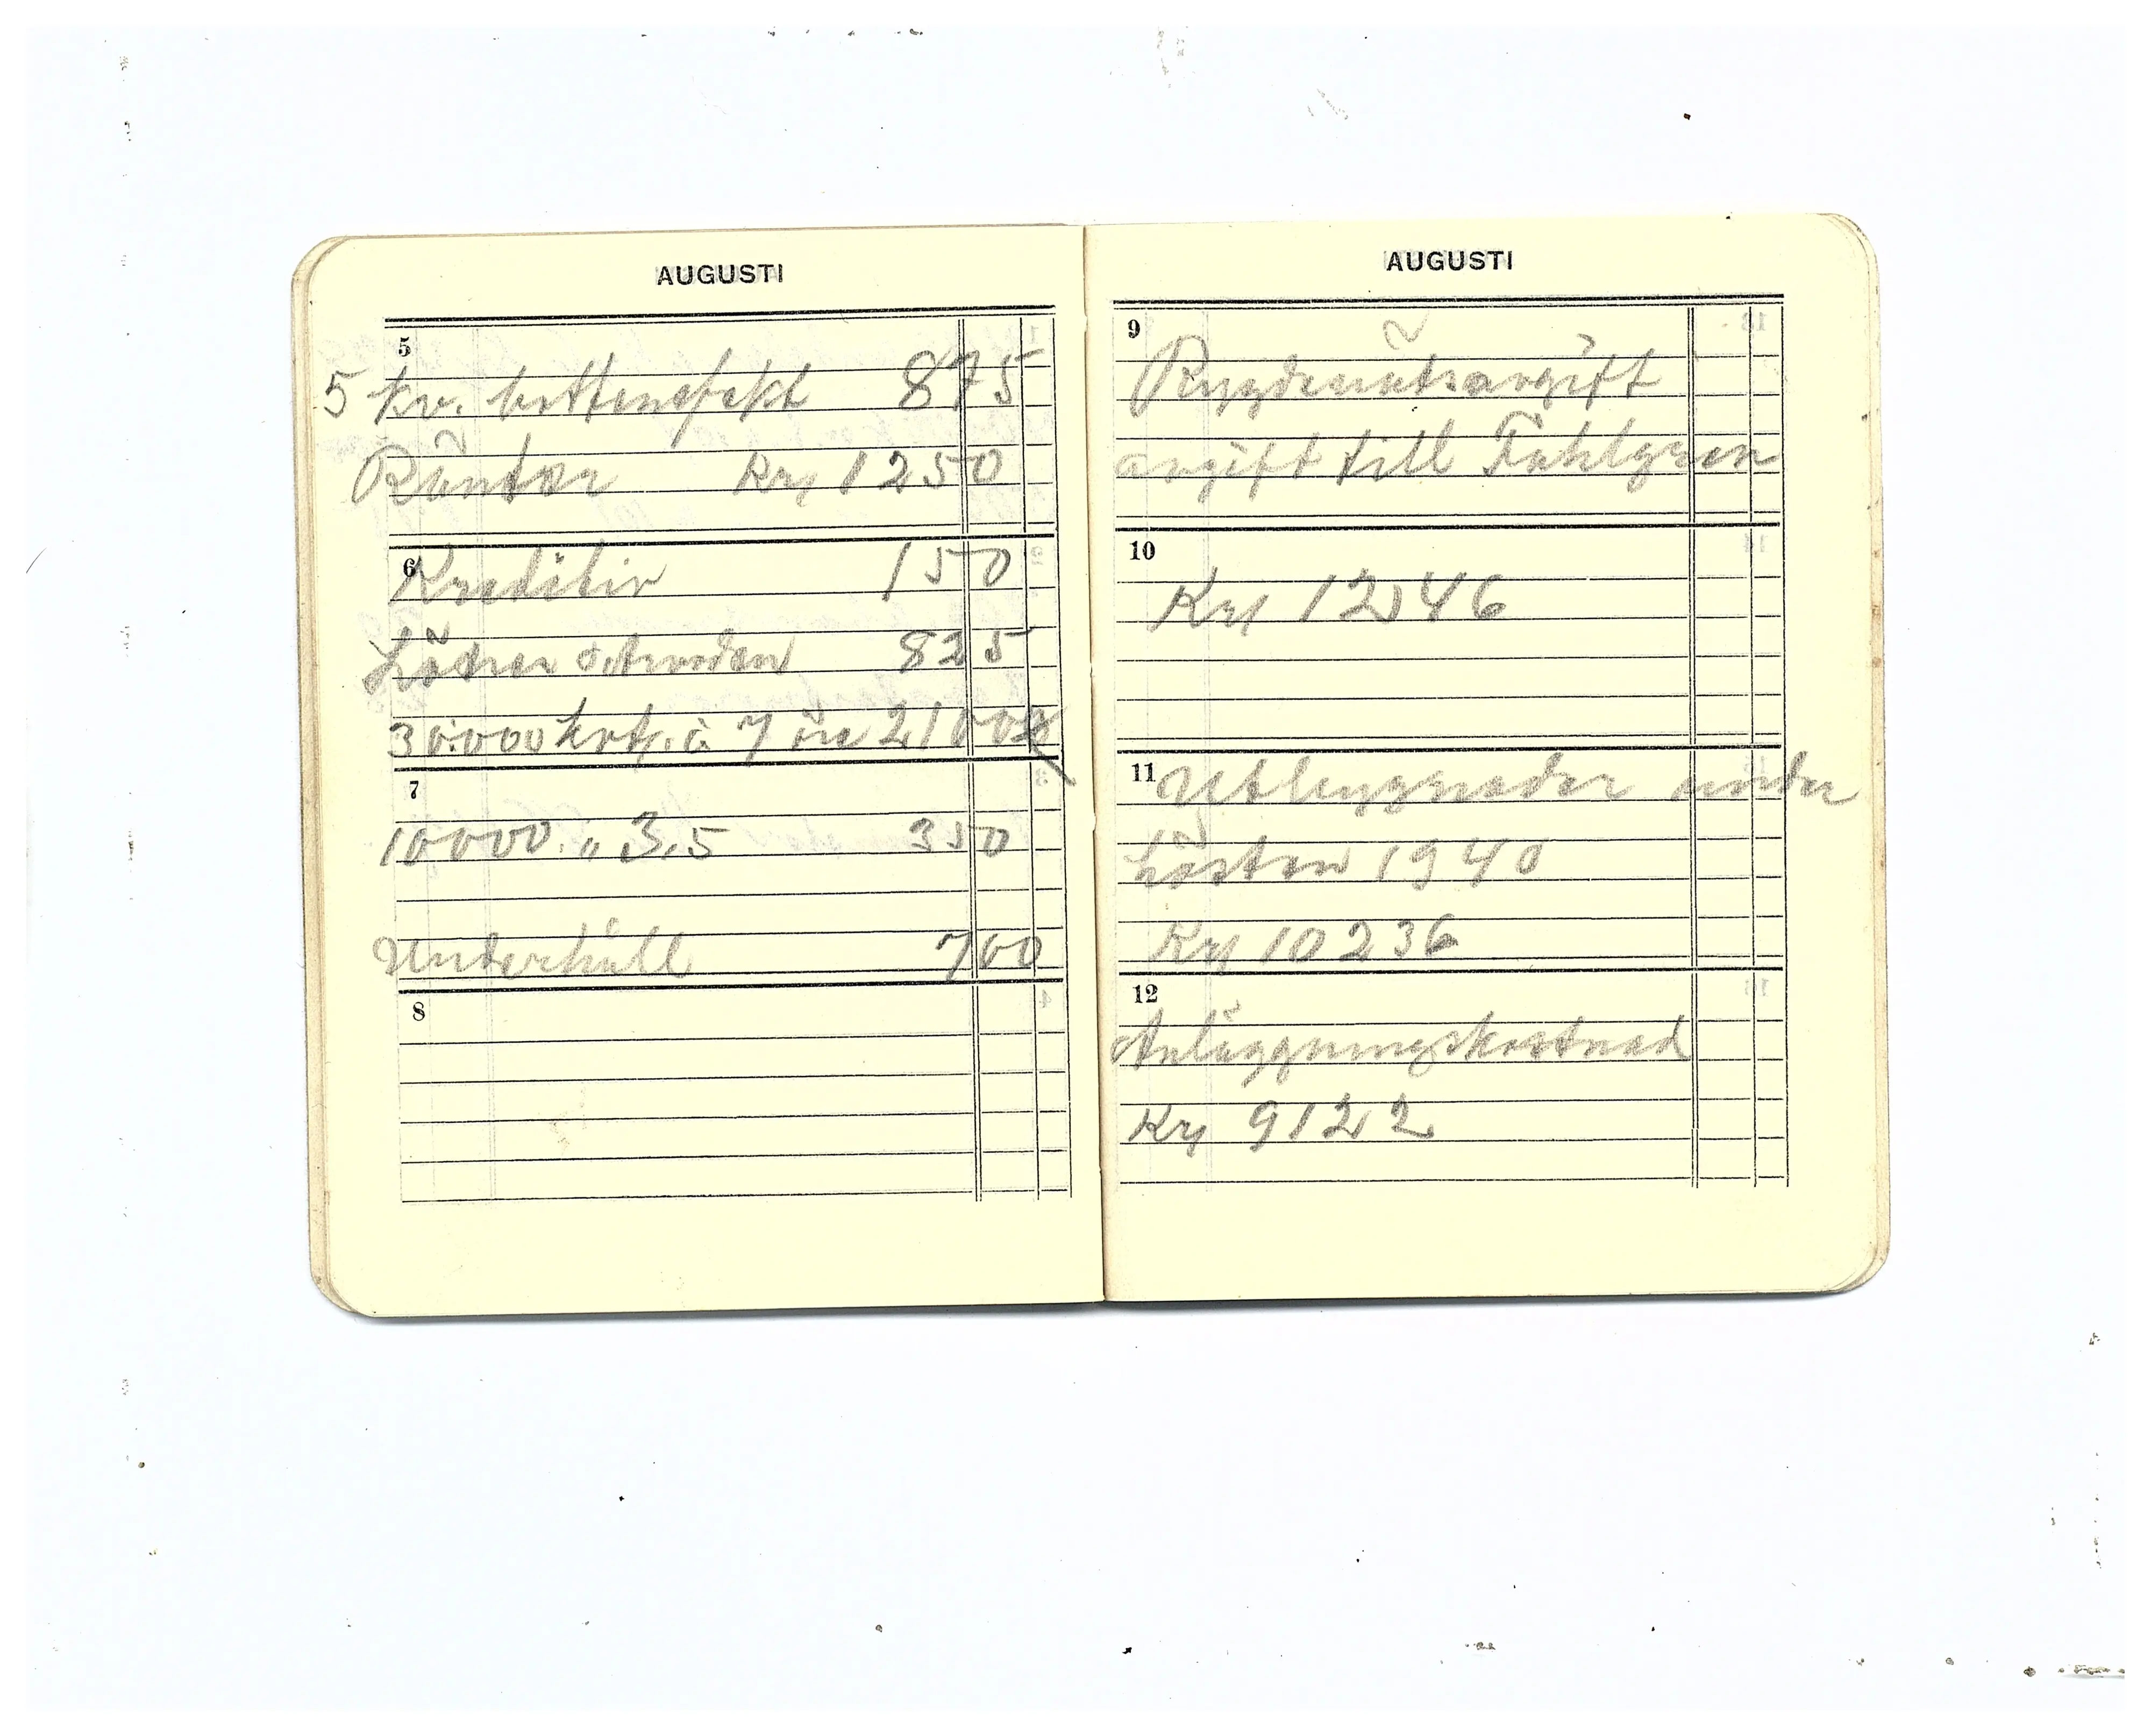 AUGUSTI
5
5 kv. bottenefekt 875
Räntor Krs 1250
6
Kreditiv 150
Löner o. Arvoden 825
30.000 kvt. à 7 öre 2100
7
10000 „ 3,5 350
Underhåll 700
8
AUGUSTI
9
Bygdenätsavgift
avgift till Fahlgren
10
Krs 1246
11
Utbyggnader under
hösten 1940
Krs 10236
12
Anläggningskostnad
Krs 9122